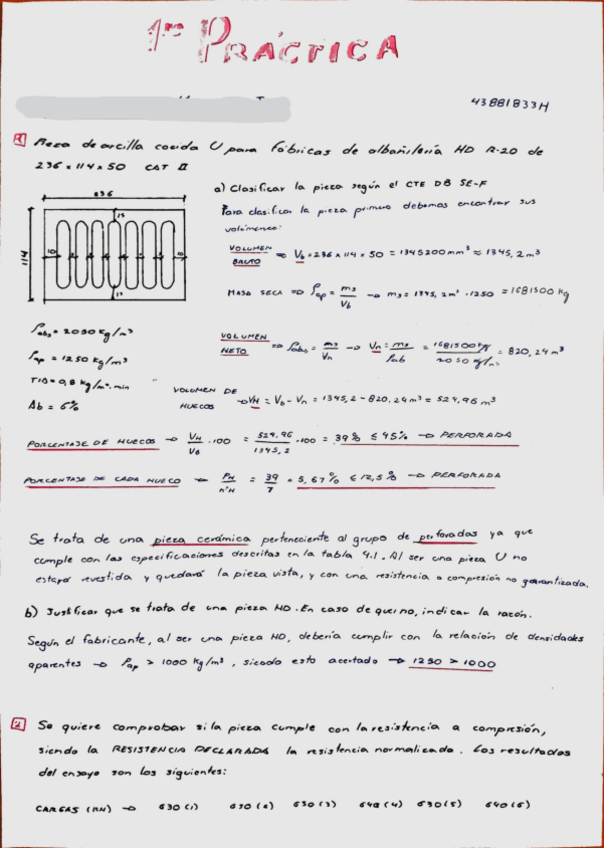 1ra PRÁCTICA
43881833H
1 Pieza de arcilla cocida U para fábricas de albañilería HD R-20 de
236 x 114 x 50 CAT II
a) Clasificar la pieza según el CTE DB SE-F
Para clasificar la pieza primero debemos encontrar sus
volúmenes:
236
114
15
10
10
15
VOLUMEN BRUTO ⇒ Vb = 236 x 114 x 50 = 1345200 mm³ ≈ 1345,2 m³
MASA SECA ⇒ ρap = ms/Vb → ms = 1345,2 m³ · 1250 = 1681500 kg
ρabs = 2050 kg/m³
ρap = 1250 kg/m³
TIA = 0,8 kg/m²·min
Ab = 6%
VOLUMEN NETO ⇒ ρabs = ms/Vn → Vn = ms/ρab = 1681500 kg / 2050 kg/m³ = 820,24 m³
VOLUMEN DE HUECOS → VH = Vb - Vn = 1345,2 - 820,24 m³ = 524,96 m³
PORCENTAJE DE HUECOS → VH/Vb · 100 = 524,96/1345,2 · 100 = 39% ≤ 45% → PERFORADA
PORCENTAJE DE CADA HUECO → PH/nºH = 39/7 = 5,67% ≤ 12,5% → PERFORADA
Se trata de una pieza cerámica perteneciente al grupo de perforadas ya que
cumple con las especificaciones descritas en la tabla 4.1. Al ser una pieza U no
estará revestida y quedará la pieza vista, y con una resistencia a compresión no garantizada.
b) Justificar que se trata de una pieza HD. En caso de que no, indicar la razón.
Según el fabricante, al ser una pieza HD, debería cumplir con la relación de densidades
aparentes → ρap > 1000 kg/m³, siendo esto acertado → 1250 > 1000
2 Se quiere comprobar si la pieza cumple con la resistencia a compresión,
siendo la RESISTENCIA DECLARADA la resistencia normalizada. Los resultados
del ensayo son los siguientes:
CARGAS (KN) → 630 (1) (2) 650 (3) 640 (4) 630 (5) 640 (6)